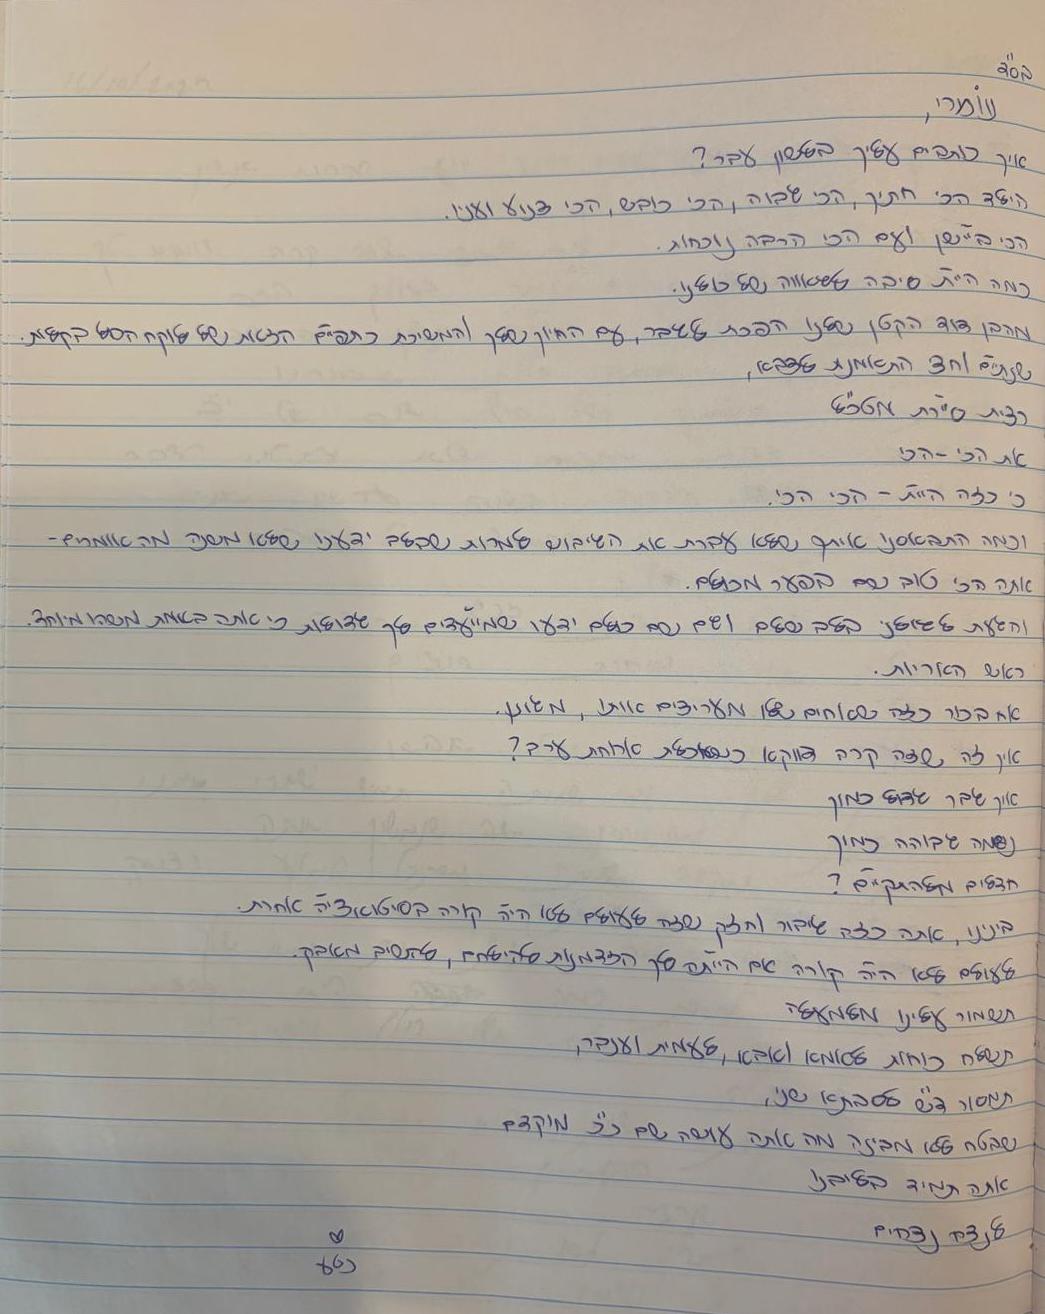 בס"ד
נוֹמרי,
איך כותבים עליך בלשון עבר?
הילד הכי חתיך, הכי גבוה, הכי כובש, הכי צנוע ועניו.
הכי ביישן ועם הכי הרבה נוכחות.
כמה היית סיבה לגאווה של כולנו.
מהבן דוד הקטן שלנו הפכת לגבר, עם החיוך שלך והמשיכת כתפיים הזאת של לוקח הכל בקלות.
שנתיים וחצי התאמנת לצבא,
רצית סיירת מטכ"ל
את הכי-הכי
כי כזה היית - הכי הכי.
וכמה התבאסנו איתך שלא עברת את הגיבוש למרות שבלב ידענו שלא משנה מה אומרים-
אתה הכי טוב שם בפער מכולם.
והגעת לגולני בלב שלם ושם גם כולם ידעו שמייעדים לך גדולות כי אתה באמת משהו מיוחד.
ראש האריות.
אח בכור כזה שאחים שלו מעריצים אותו, משוגע.
איך זה שזה קרה דווקא כשאכלת ארוחת ערב?
איך גבר גדול כמוך
נשמה גבוהה כמוך
חדלים מלהתקיים?
בינינו, אתה כזה גיבור וחזק שזה לעולם לא היה קורה בסיטואציה אחרת.
לעולם לא היה קורה אם הייתה לך הזדמנות להילחם, להשיב מאבק.
תשמור עלינו מלמעלה
תשלח כוחות לאמא ואבא, לעמית וענבר,
תמסור ד"ש לסבתא שני,
שבטח לא מבינה מה אתה עושה שם כ"כ מוקדם
אתה תמיד בליבנו
לנצח נצחים
♡
נטע